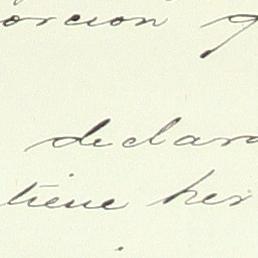 orcion q
declara
tiene her